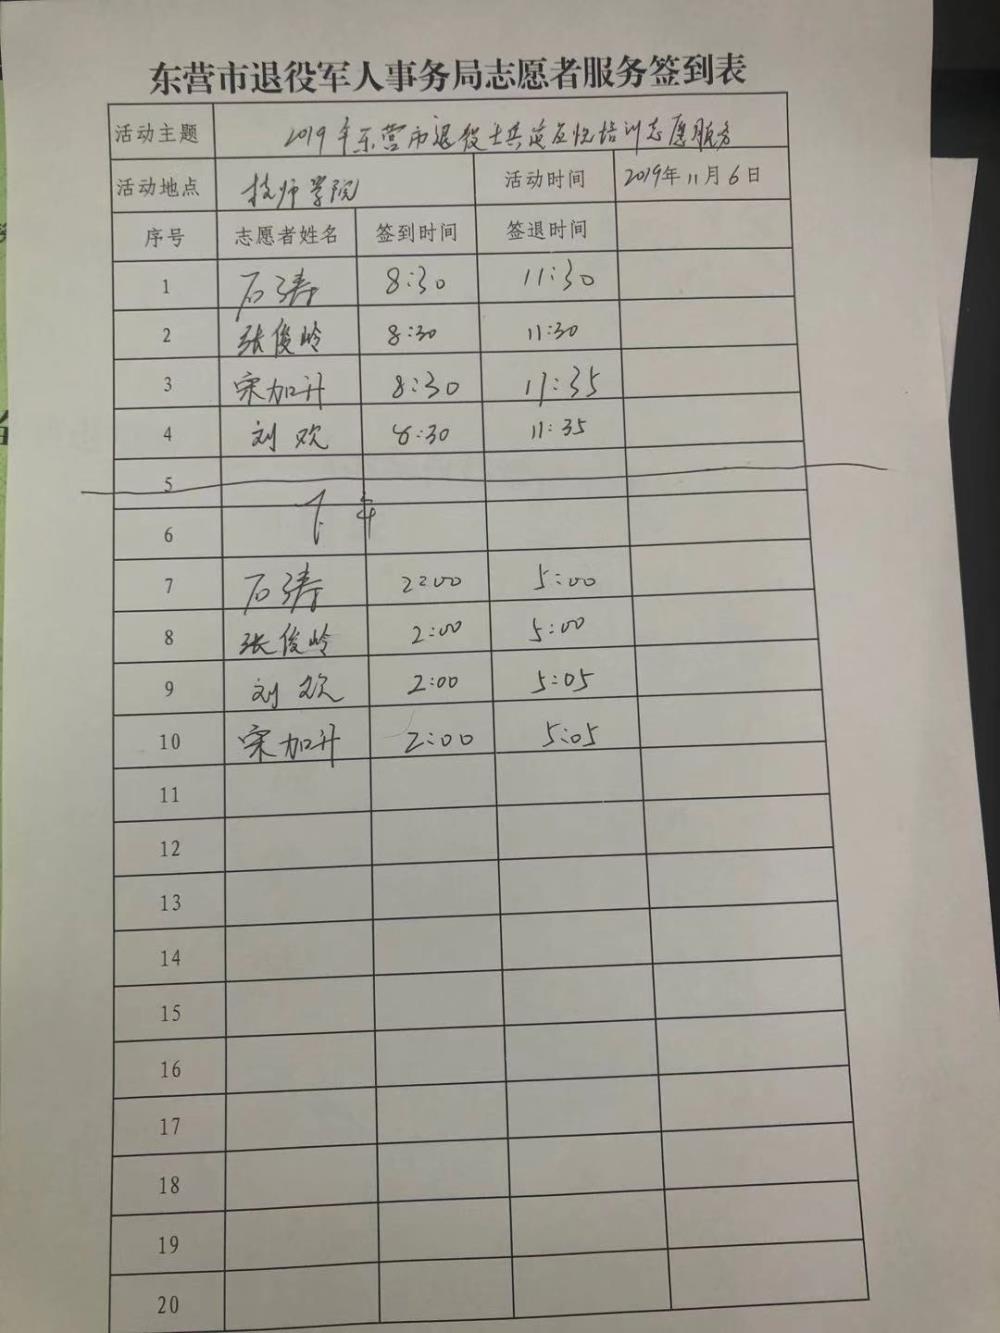 东营市退役军人事务局志愿者服务签到表
活动主题 2019年东营市退役士兵适应性培训志愿服务
活动地点 技师学院 活动时间 2019年11月6日
序号 志愿者姓名 签到时间 签退时间
1 石涛 8:30 11:30
2 张俊岭 8:30 11:30
3 宋加升 8:30 11:35
4 刘欢 8:30 11:35
5
6 下午
7 石涛 2:00 5:00
8 张俊岭 2:00 5:00
9 刘欢 2:00 5:05
10 宋加升 2:00 5:05
11
12
13
14
15
16
17
18
19
20